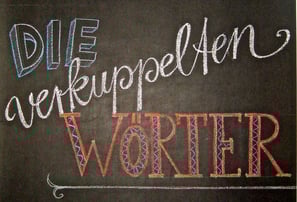 DIE
verkuppelten
WÖRTER